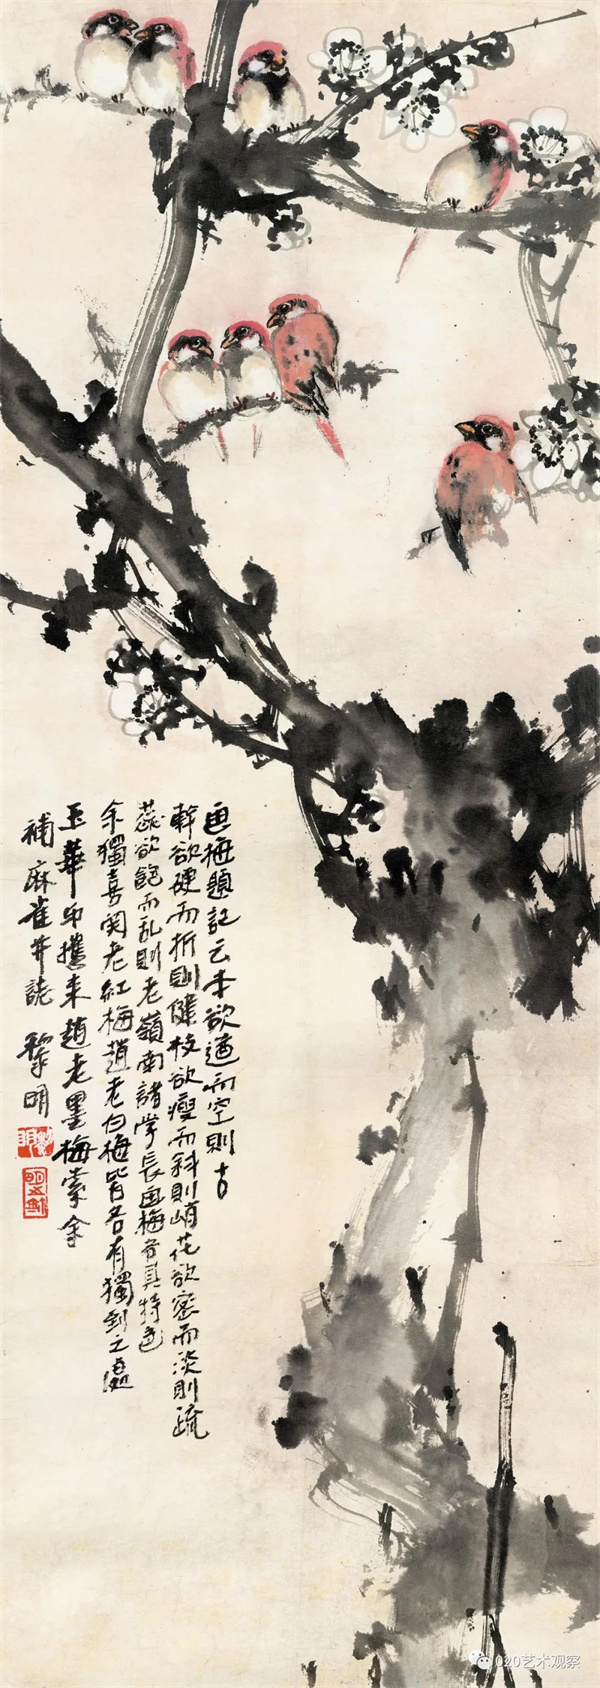 画梅題記云本欲適而空則古
幹欲硬而折則健枝欲瘦而斜則峭花欲密而淡則疏
蕊欲飽而乱則老嶺南諸学長画梅各具特色
余獨喜関老紅梅趙老白梅皆各有獨到之處
玉華印携来趙老墨梅索余
補麻雀并誌 黎明
020艺术观察